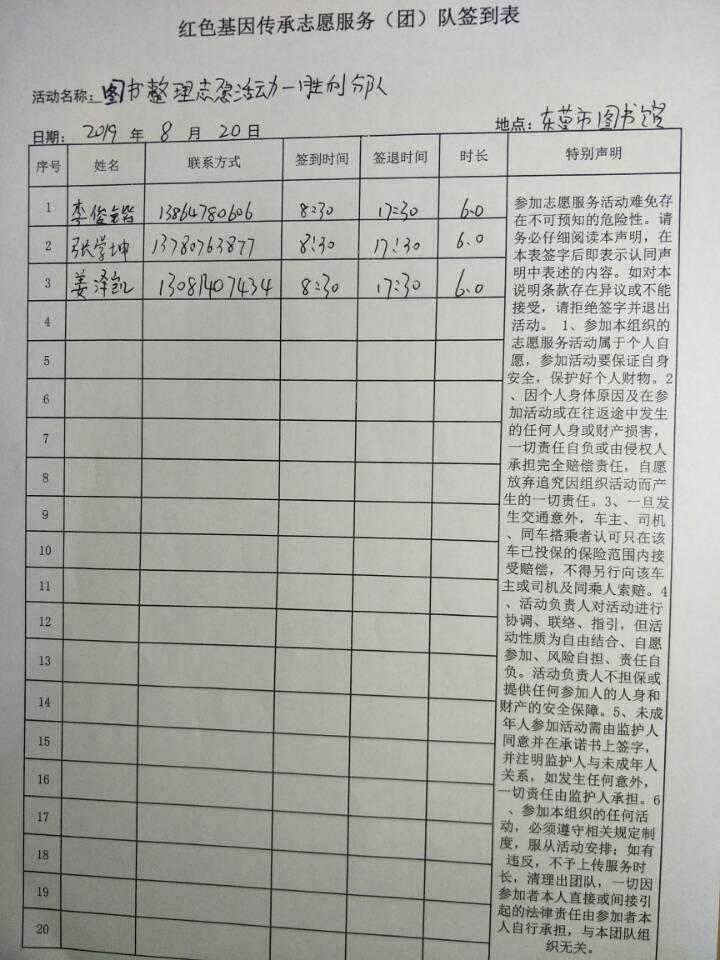 红色基因传承志愿服务（团）队签到表
活动名称：图书整理志愿活动—胜利分队
日期： 2019 年 8 月 20 日 地点：东营市图书馆
序号 姓名 联系方式 签到时间 签退时间 时长 特别声明
1 李俊锴 13864780606 8:30 17:30 6.0
2 张学坤 13780763877 8:30 17:30 6.0
3 姜泽凯 13081407434 8:30 17:30 6.0
4
5
6
7
8
9
10
11
12
13
14
15
16
17
18
19
20
参加志愿服务活动难免存
在不可预知的危险性。请
务必仔细阅读本声明，在
本表签字后即表示认同声
明中表述的内容。如对本
说明条款存在异议或不能
接受，请拒绝签字并退出
活动。 1、参加本组织的
志愿服务活动属于个人自
愿，参加活动要保证自身
安全，保护好个人财物。2
、因个人身体原因及在参
加活动或在往返途中发生
的任何人身或财产损害，
一切责任自负或由侵权人
承担完全赔偿责任，自愿
放弃追究因组织活动而产
生的一切责任。3、一旦发
生交通意外，车主、司机
、同车搭乘者认可只在该
车已投保的保险范围内接
受赔偿，不得另行向该车
主或司机及同乘人索赔。4
、活动负责人对活动进行
协调、联络、指引，但活
动性质为自由结合、自愿
参加、风险自担、责任自
负。活动负责人不担保或
提供任何参加人的人身和
财产的安全保障。5、未成
年人参加活动需由监护人
同意并在承诺书上签字，
并注明监护人与未成年人
关系，如发生任何意外，
一切责任由监护人承担。6
、参加本组织的任何活
动，必须遵守相关规定制
度，服从活动安排；如有
违反，不予上传服务时
长，清理出团队，一切因
参加者本人直接或间接引
起的法律责任由参加者本
人自行承担，与本团队组
织无关。